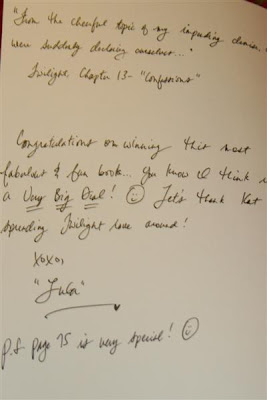 "From the cheerful topic of my impending demise,
we were suddenly declaring ourselves..."
Twilight, Chapter 13 - "Confessions"
Congratulations on winning this most
fabulous & fun book... You know I think
a Very Big Deal! ☺ Let's thank Kat
spreading Twilight love around!
xoxo,
P.S. page 75 is very special! ☺